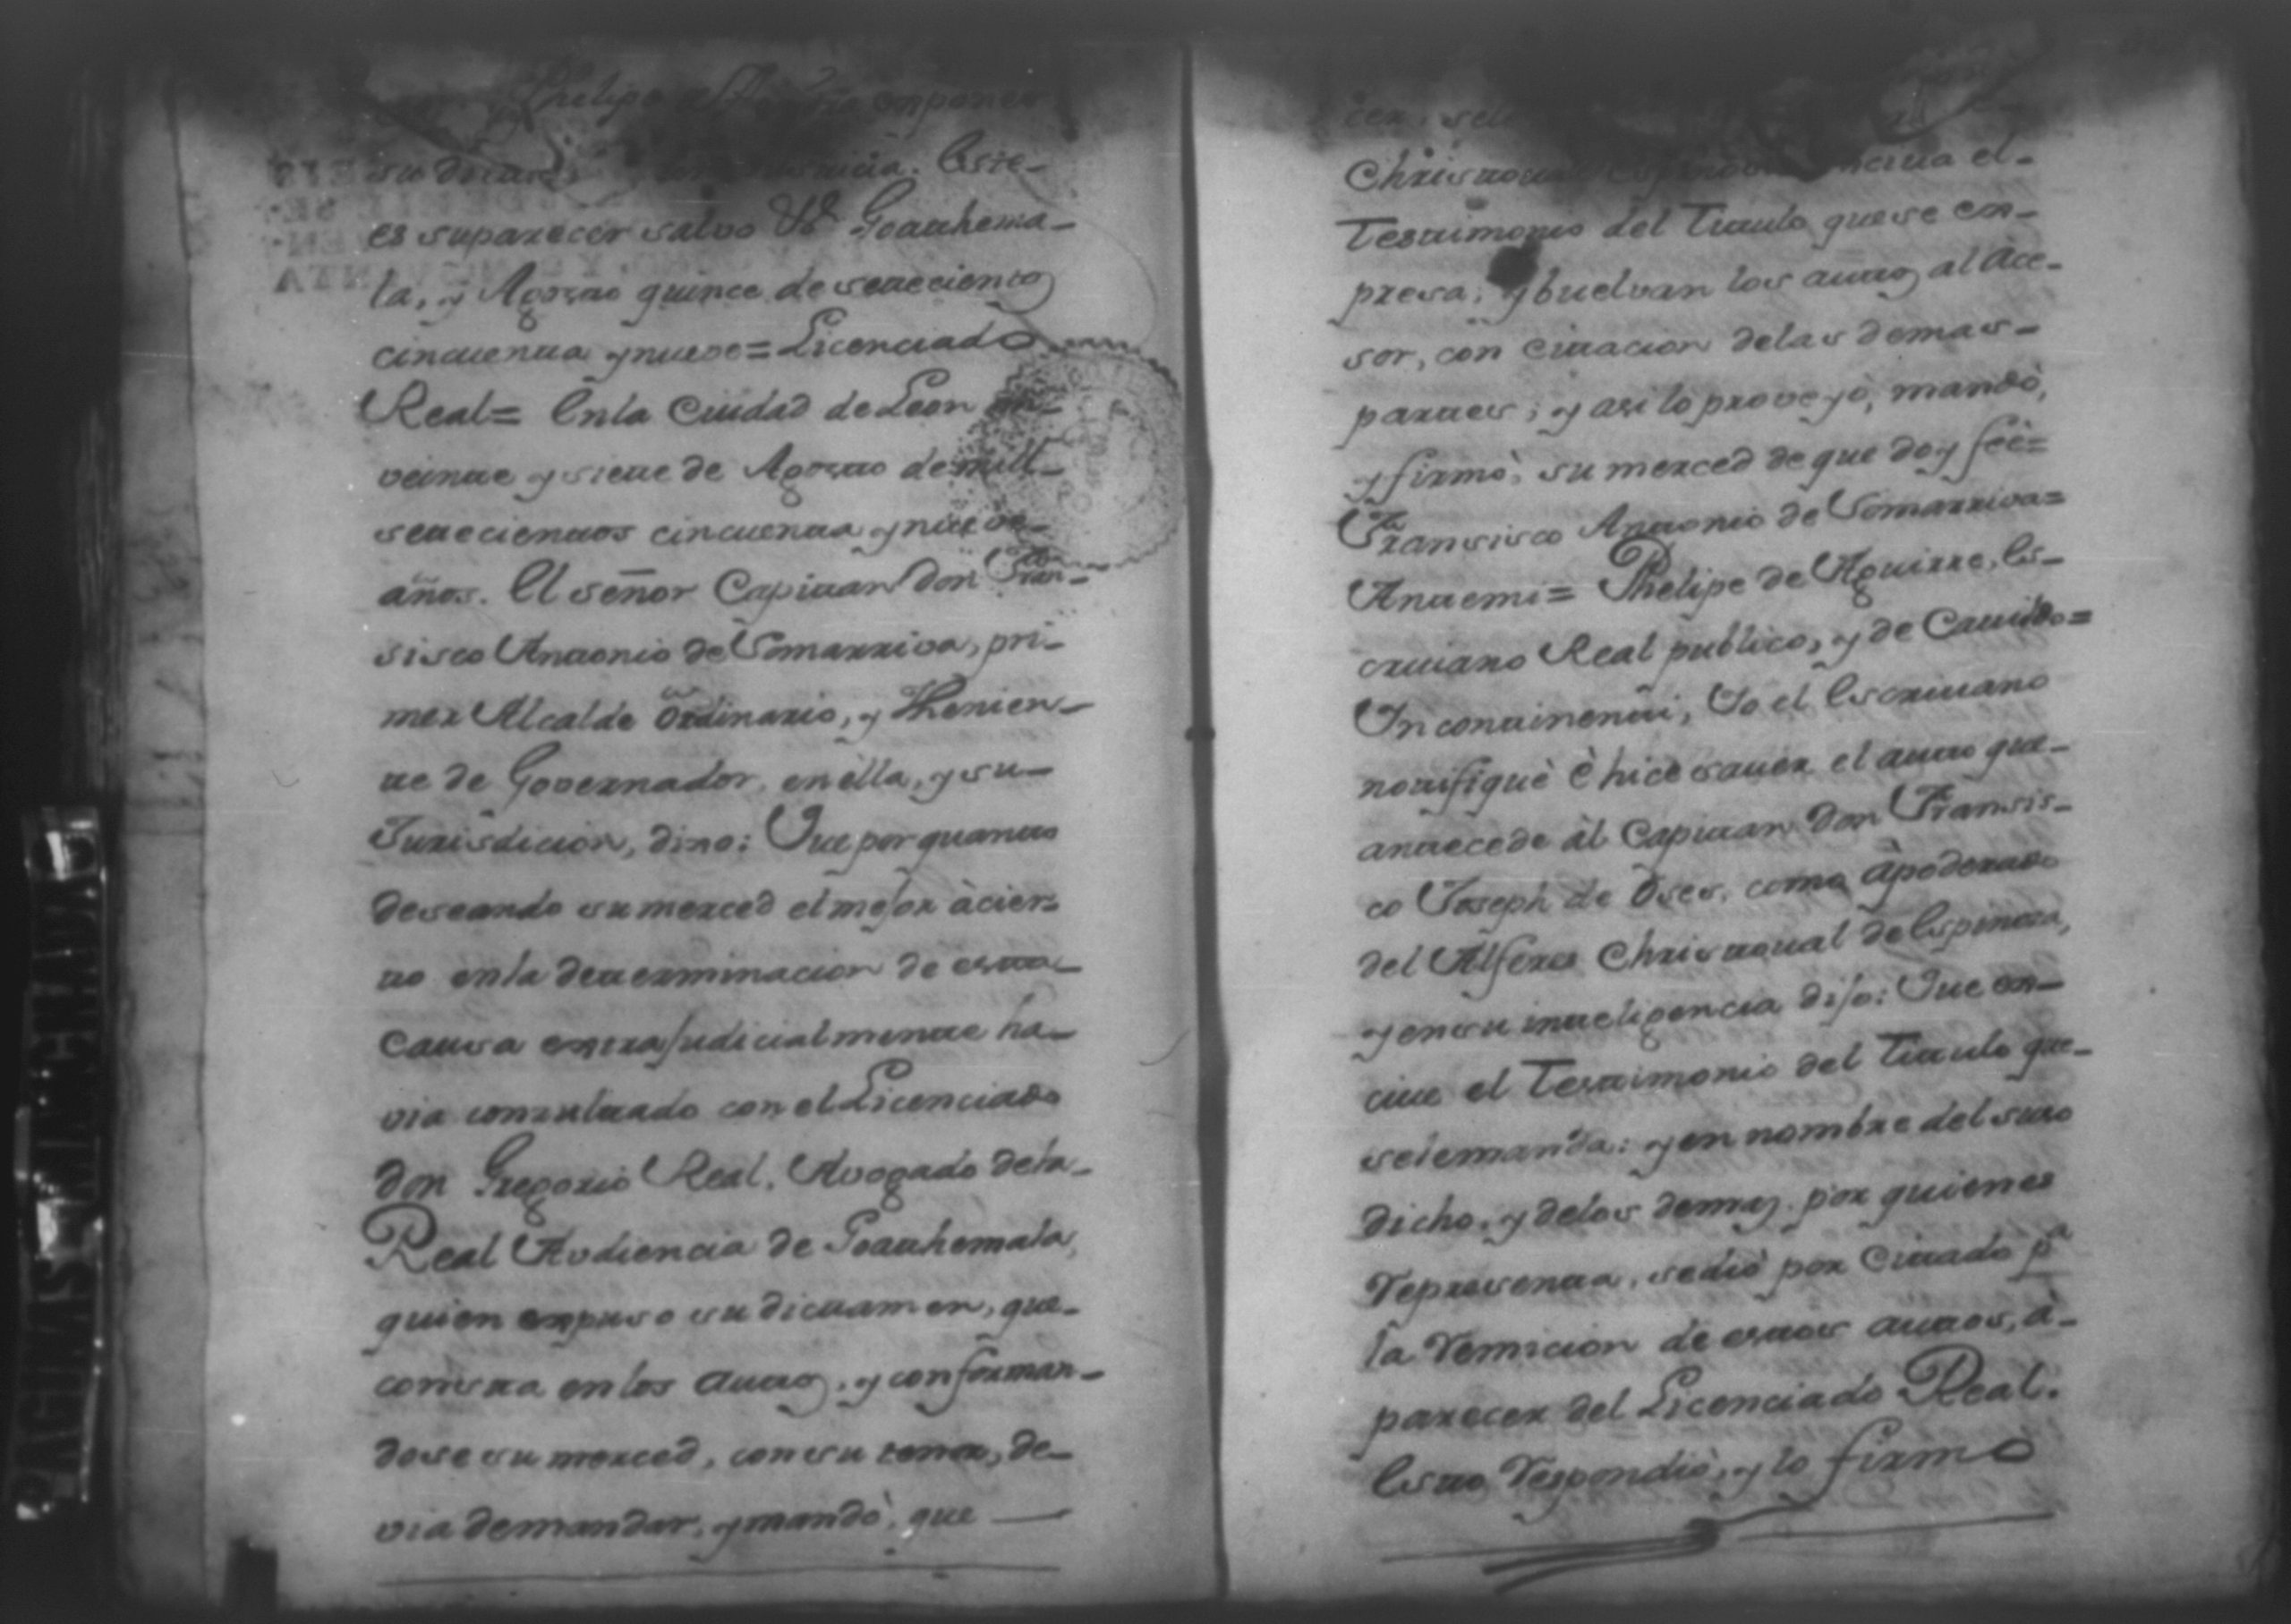 Phelipe
su
es suparecer salvo &ª Goathema-
la, y Agosto quince de setecientos
cincuenta ynueve = Licenciado
Real = Enla Ciudad de Leon en-
veinte y siete de Agosto de mill-
setecientos cincuenta ynueve-
años. El señor Capitan don Fran-
sisco Antonio de Somarriva, pri-
mer Alcalde Ordinario, y Thenien-
te de Governador, enèlla, y su-
Jurisdicion, dixo: Que por quanto
deseando su merced el mejor àcier-
to enla determinacion de esta-
Causa extrajudicialmente ha-
via consultado con el Licenciado
don Gregorio Real, Avogado dela-
Real Audiencia de Goathemala,
quien expuso su dictamen, que-
consta en los autos, y conforman-
dose su merced, con su tenor, de-
via demandar, y mandò, que
Christoval el-
Testimonio del Titulo que se ex-
presa; y buelvan los autos al Ace-
sor, con Citacion delas demas-
partes; y asi lo proveyò, mandò,
y firmò, su merced de que doy feè=
Fransisco Antonio de Somarriva=
Antemi = Phelipe de Aguirre, Es-
crivano Real publico, y de Cavildo=
In continenti, Yo el Escrivano
notifiquè è hice saver el auto que-
antecede àl Capitan don Fransis-
co Joseph de Oses, como àpoderado
del Alferes Christoval de Espinoza,
y en su inteligencia dijo: Que ex-
cive el Testimonio del Titulo que-
sele manda: y en nombre del suso
dicho, y delos demas por quienes
representa, sedio por Citado pª
la remicion de estos autos, à-
parecer del Licenciado Real.
Esto respondiò, y lo firmó
PAGINAS MANCHADAS